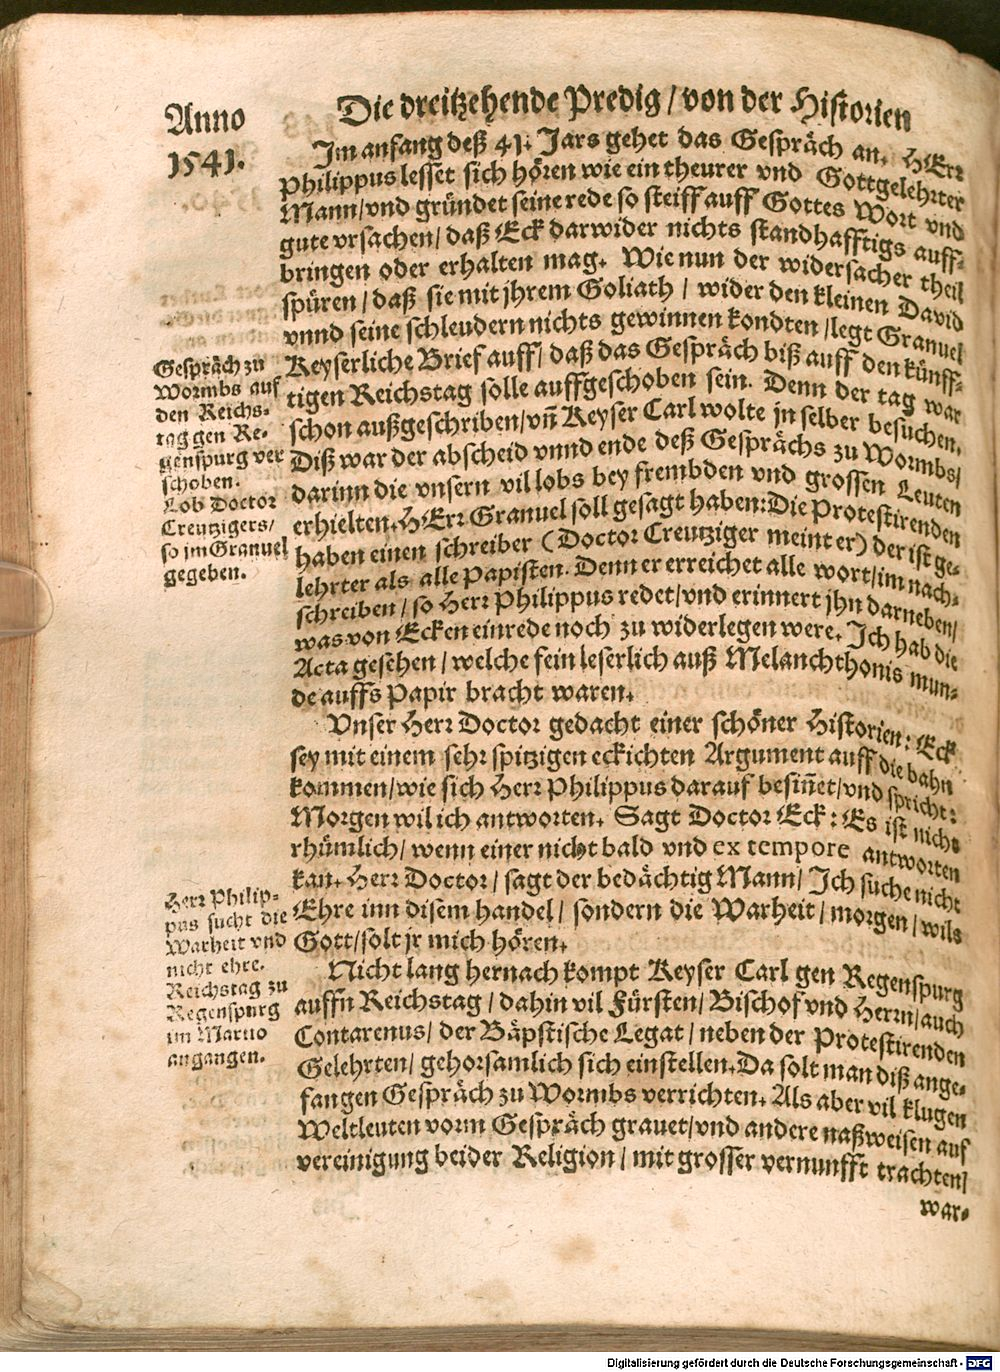 Anno
1541.
Die dreitzehende Predig / von der Historien
Im anfang deß 41. Jars gehet das Gespräch an. HErr
Philippus lesset sich hören wie ein theurer vnd Gottgelehrter
Mann / vnd gründet seine rede so steiff auff Gottes Wort vnd
gute vrsachen / daß Eck darwider nichts standhafftigs auff-
bringen oder erhalten mag. Wie nun der widersacher theil
spüren / daß sie mit jhrem Goliath / wider den kleinen David
vnnd seine schleudern nichts gewinnen kondten / legt Granuel
Keyserliche Brief auff / daß das Gespräch biß auff den künff-
tigen Reichstag solle auffgeschoben sein. Denn der tag war
schon außgeschriben / vñ Keyser Carl wolte jn selber besuchen.
Diß war der abscheid vnnd ende deß Gesprächs zu Wormbs /
darinn die vnsern vil lobs bey frembden vnd grossen Leuten
erhielten. HErr Granuel soll gesagt haben: Die Protestirenden
haben einen schreiber (Doctor Creutziger meint er) der ist ge-
lehrter als alle Papisten. Denn er erreichet alle wort / im nach-
schreiben / so Herr Philippus redet / vnd erinnert jhn darneben /
was von Ecken einrede noch zu widerlegen were. Ich hab die
Acta gesehen / welche fein leserlich auß Melanchthonis mun-
de auffs Papir bracht waren.
Gespräch zu
Wormbs auf
den Reichs-
tag gen Re-
genspurg ver
schoben.
Lob Doctor
Creutzigers /
so im Granuel
gegeben.
Vnser Herr Doctor gedacht einer schöner Historien: Eck
sey mit einem sehr spitzigen eckichten Argument auff die bahn
kommen / wie sich Herr Philippus darauf besiñet / vnd spricht:
Morgen wil ich antworten. Sagt Doctor Eck: Es ist nicht
rhümlich / wenn einer nicht bald vnd ex tempore antworten
kan. Herr Doctor / sagt der bedächtig Mann / Ich suche nicht
Ehre inn disem handel / sondern die Warheit / morgen / wils
Gott / solt jr mich hören.
Herr Philip-
pus sucht die
Warheit vnd
nicht ehre.
Reichstag zu
Regenspurg
im Martio
angangen.
Nicht lang hernach kompt Keyser Carl gen Regenspurg
auffn Reichstag / dahin vil Fürsten / Bischof vnd Herrn / auch
Contarenus / der Bäpstische Legat / neben der Protestirenden
Gelehrten / gehorsamlich sich einstellen. Da solt man diß ange-
fangen Gespräch zu Wormbs verrichten. Als aber vil klugen
Weltleuten vorm Gespräch grauet / vnd andere naßweisen auf
vereinigung beider Religion / mit grosser vernunfft trachten /
war-
Digitalisierung gefördert durch die Deutsche Forschungsgemeinschaft - DFG